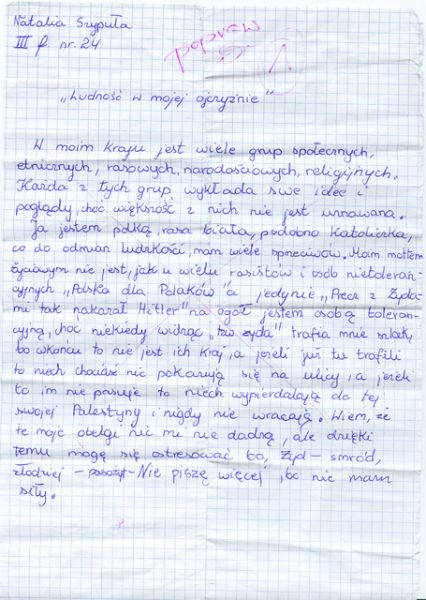 Natalia Szypuła
III f nr. 24
popraw
„Ludność w mojej ojczyźnie"
W moim kraju jest wiele grup społecznych,
etnicznych, rasowych, narodościowych, religijnych.
Każda z tych grup wykłada swe idee i
poglądy, choć większość z nich nie jest uznawana.
Ja jestem polką, rasa biała, podobno Katoliczka,
co do odmian ludzkości, mam wiele sprzeciwów. Moim mottem
życiowym nie jest, jak u wielu rasistów i osób nietoleran-
cyjnych „Polska dla Polaków" a jedynie „Precz z Żyda-
mi tak nakazał Hitler" na ogół jestem osobą toleran-
cyjną, choć niekiedy widząc „tzw żyda" trafia mnie szlak,
bo wkońcu to nie jest ich kraj, a jeżeli już tu trafili
to niech chociaż nie pokazują się na ulicy, a jeżeli
to im nie pasuje to niech wypierdalają do tej
swojej Palestyny i nigdy nie wracają. Wiem, że
te moje obelgi nic mi nie dadzą, ale dzięki
temu mogę się ostresować bo, Żyd – smród,
złodziej – pasożyt – Nie piszę więcej, bo nie mam
siły.